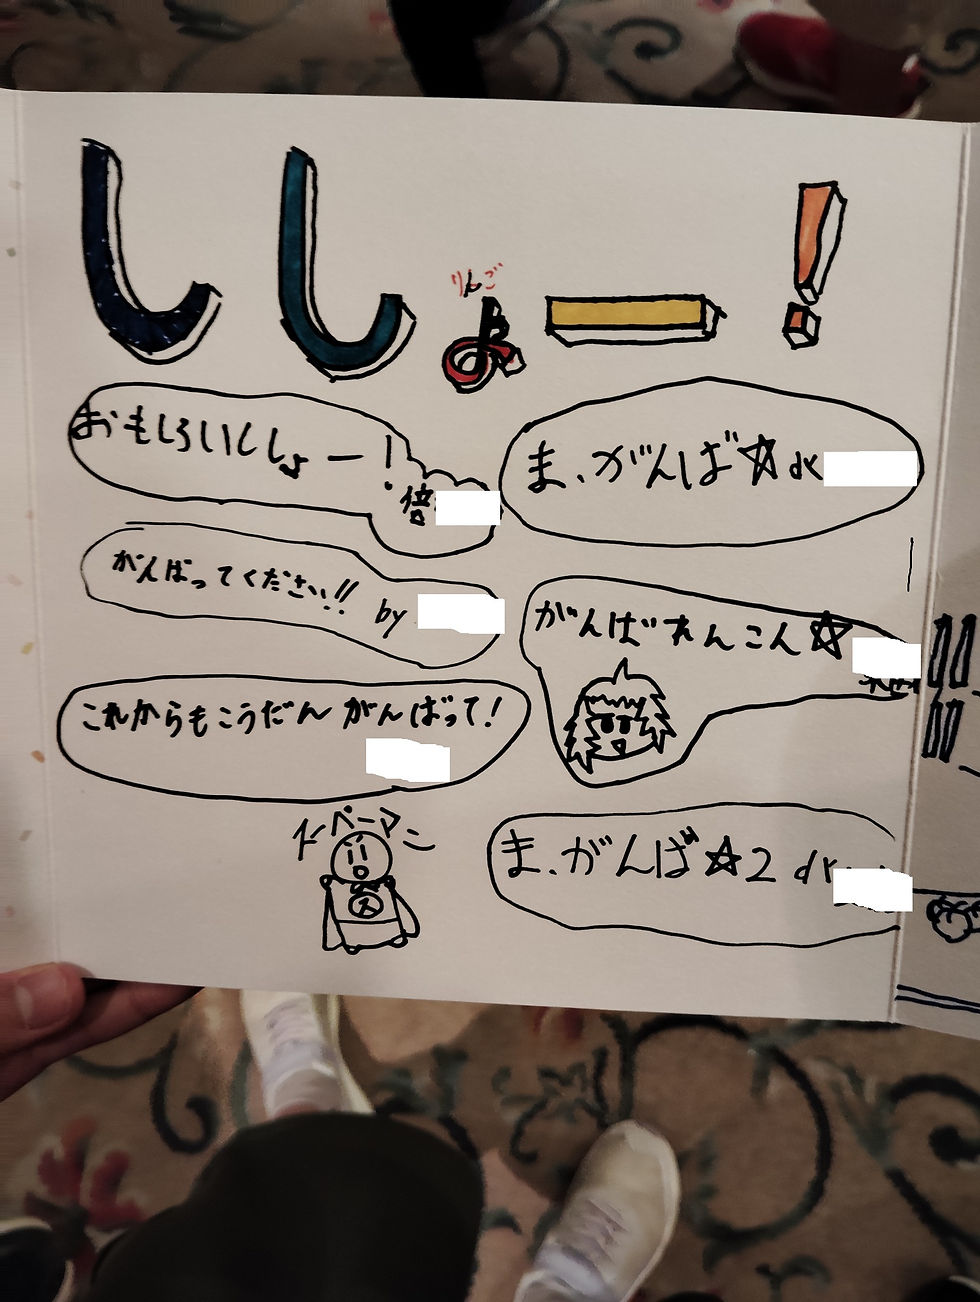 ししょー!
りんご
おもしろいししょー!
倍
ま、がんば☆ dr
がんばってください!! by
がんばれんこん☆
これからもこうだん がんばって!
ペーマン
ま、がんば☆2 dr
ス